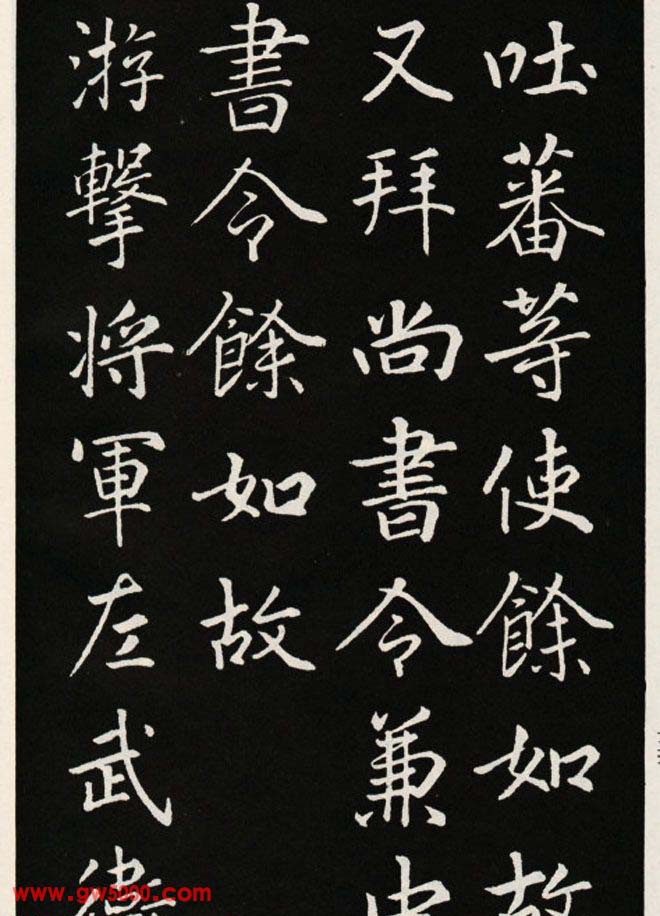 吐蕃等使餘如故
又拜尚書令兼中
書令餘如故
游擊將軍左武衛
www.gw5000.com